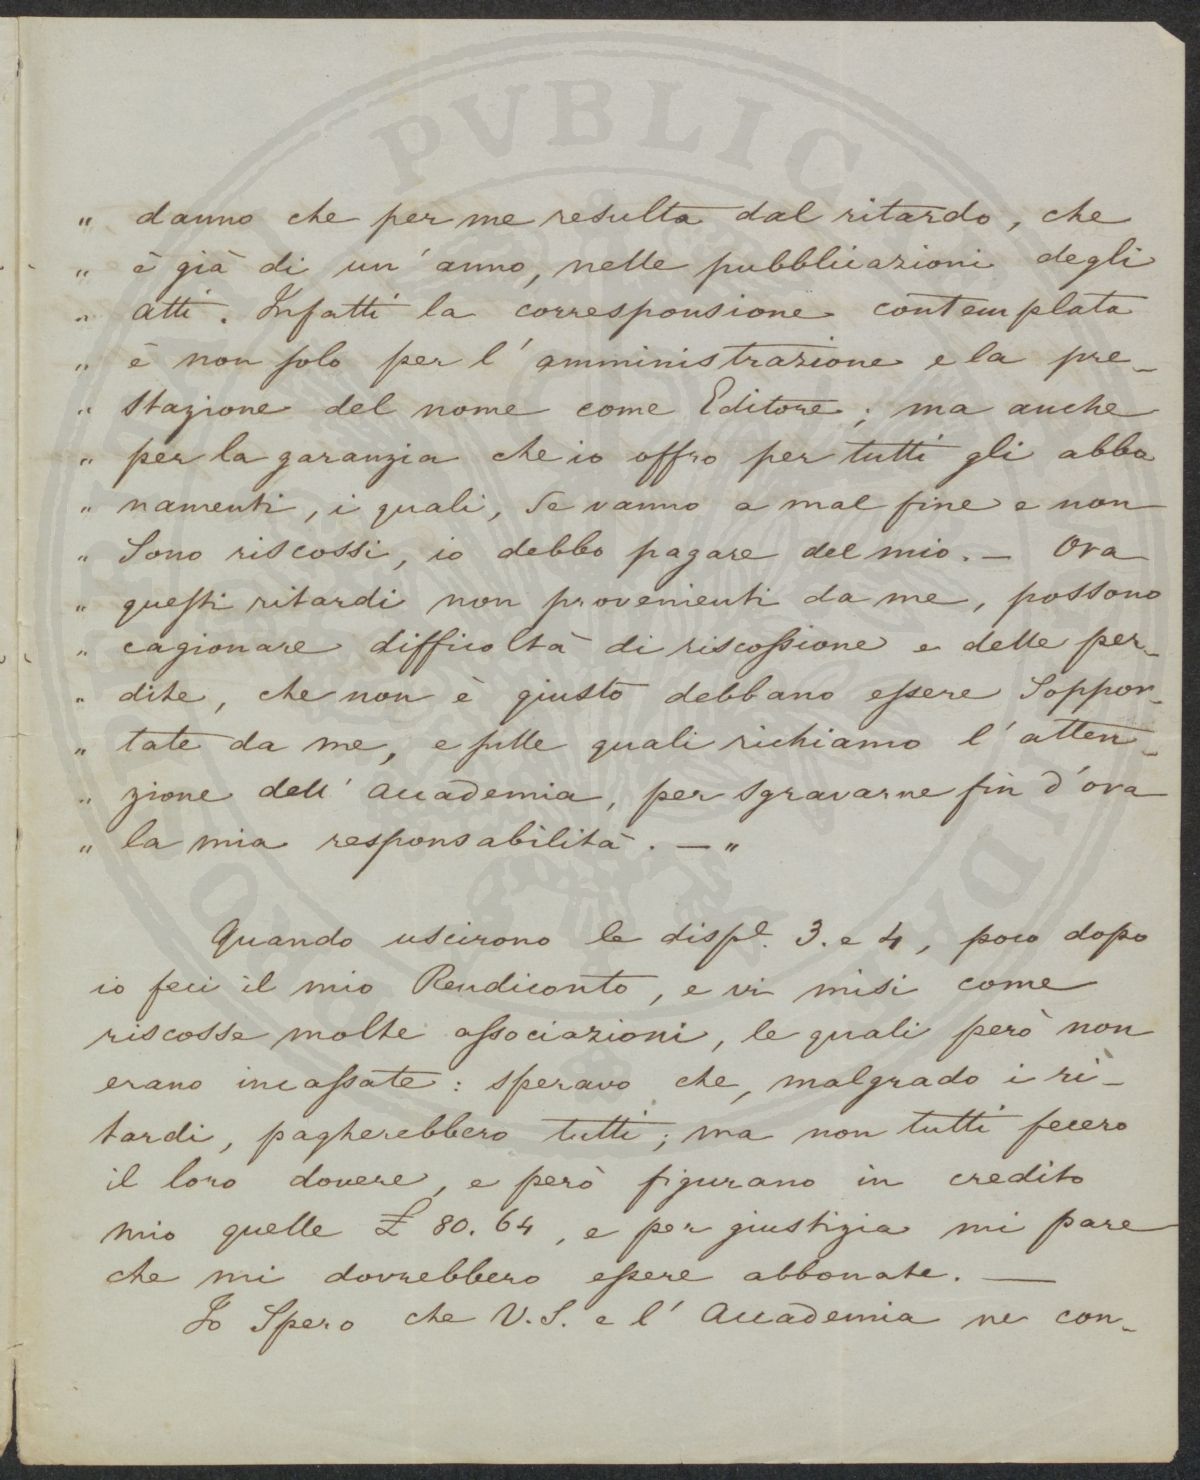 " danno che per me resulta dal ritardo, che
" è già di un' anno, nelle pubblicazioni degli
" atti. Infatti la corresponsione contemplata
" è non solo per l' amministrazione e la pre-
" stazione del nome come Editore; ma anche
" per la garanzia che io offro per tutti gli abbo
" namenti, i quali, se vanno a mal fine e non
" Sono riscossi, io debbo pagare del mio. — Ora
" questi ritardi non provenienti da me, possono
" cagionare difficoltà di riscossione e delle per-
" dite, che non è giusto debbano essere Soppor-
" tate da me, e sulle quali richiamo l' atten-
" zione dell' Accademia, per sgravarne fin d'ora
" la mia responsabilità. — "
Quando uscirono le disp.e 3. e 4, poco dopo
io feci il mio Rendiconto, e vi misi come
riscosse molte associazioni, le quali però non
erano incassate: speravo che, malgrado i ri-
tardi, pagherebbero tutti; ma non tutti fecero
il loro dovere, e però figurano in credito
mio quelle £ 80. 64, e per giustizia mi pare
che mi dovrebbero essere abbonate. —
Io Spero che V. S. e l' Accademia ne con-
PVBLICII